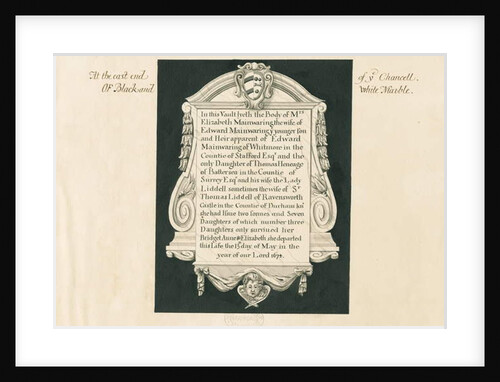 At the east end of yͤ Chancell.
OF Black and White Marble.
In this Vault lyeth the Body of Mʳˢ
Elizabeth Mainwaring the wife of
Edward Mainwaring yͤ younger son
and Heir apparent of Edward
Mainwaring of Whitmore in the
Countie of Stafford Esqʳ and the
only Daughter of Thomas Heneage
of Battersea in the Countie of
Surrey Esqʳ and his wife the Lady
Liddell sometimes the wife of Sʳ
Thomas Liddell of Ravensworth
Castle in the Countie of Durham
she had Issue two sonnes and Seven
Daughters of which number three
Daughters only survived her
Bridget Anne & Elizabeth she departed
this Life the 15 day of May in the
year of our Lord